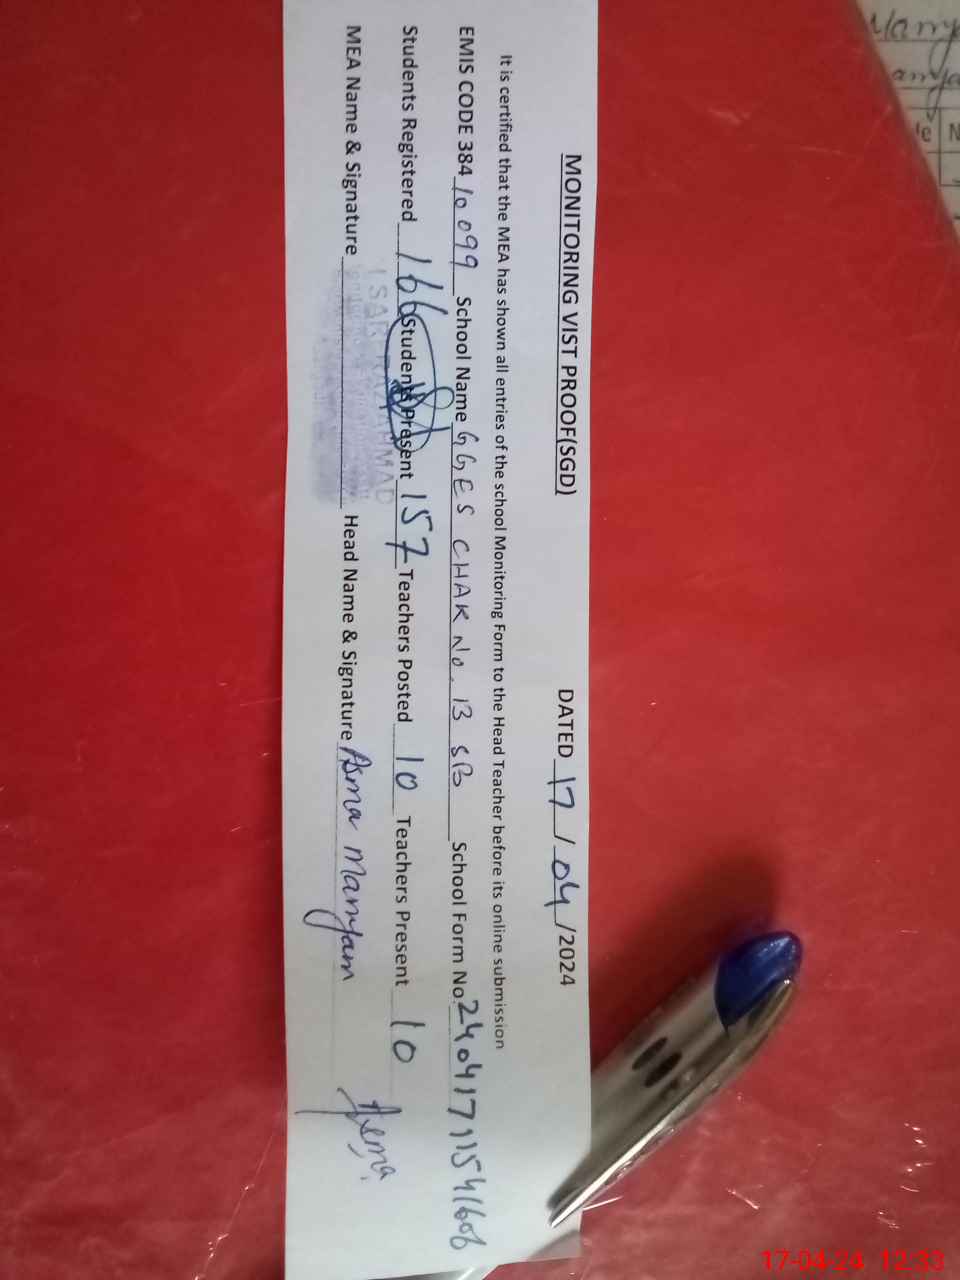 MONITORING VIST PROOF(SGD) DATED 17/04/2024
It is certified that the MEA has shown all entries of the school Monitoring Form to the Head Teacher before its online submission
EMIS CODE 384 10099 School Name GGES CHAK No. 13 SB School Form No. 24041711541606
Students Registered 166 Students Present 157 Teachers Posted 10 Teachers Present 10
MEA Name & Signature Head Name & Signature Asma Maryam Asma
17-04-24 12:33